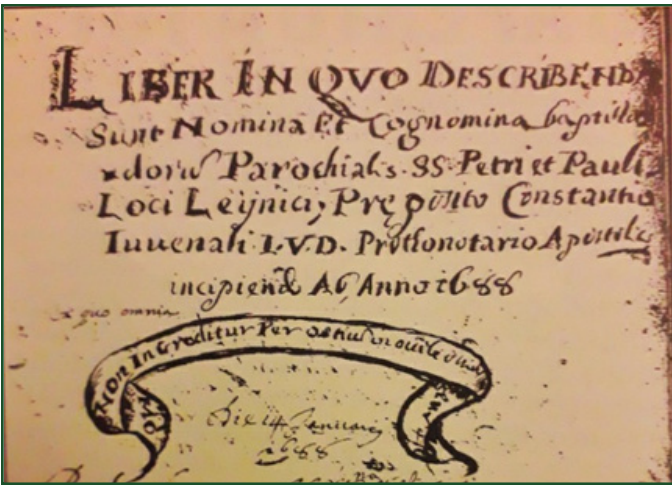 LIBER IN QVO DESCRIBENDA
Sunt Nomina Et Cognomina baptiza
dorũ Parochialis SS. Petri et Pauli
Loci Leÿnici, Preposito Constantio
Iuvenali I.V.D. Prothonotario Apostilco
incipiend Ab Anno 1688
ex quo omnia
Non Ingreditur Per ostiũ in ouile
Die 14 Januarij
1688